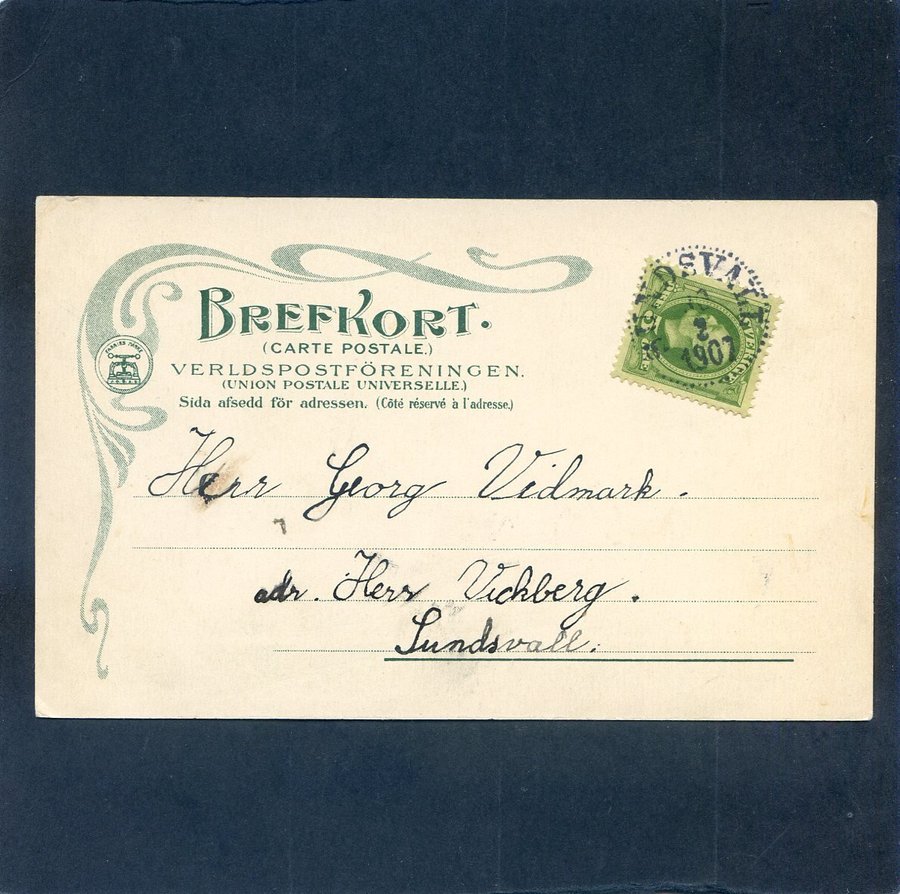 BREFKORT.
(CARTE POSTALE.)
VERLDSPOSTFÖRENINGEN.
(UNION POSTALE UNIVERSELLE.)
Sida afsedd för adressen. (Côté réservé à l'adresse.)
SUNDSVALL
2
1907
SVERIGE
Herr Georg Vidmark.
adr. Herr Vickberg.
Sundsvall.